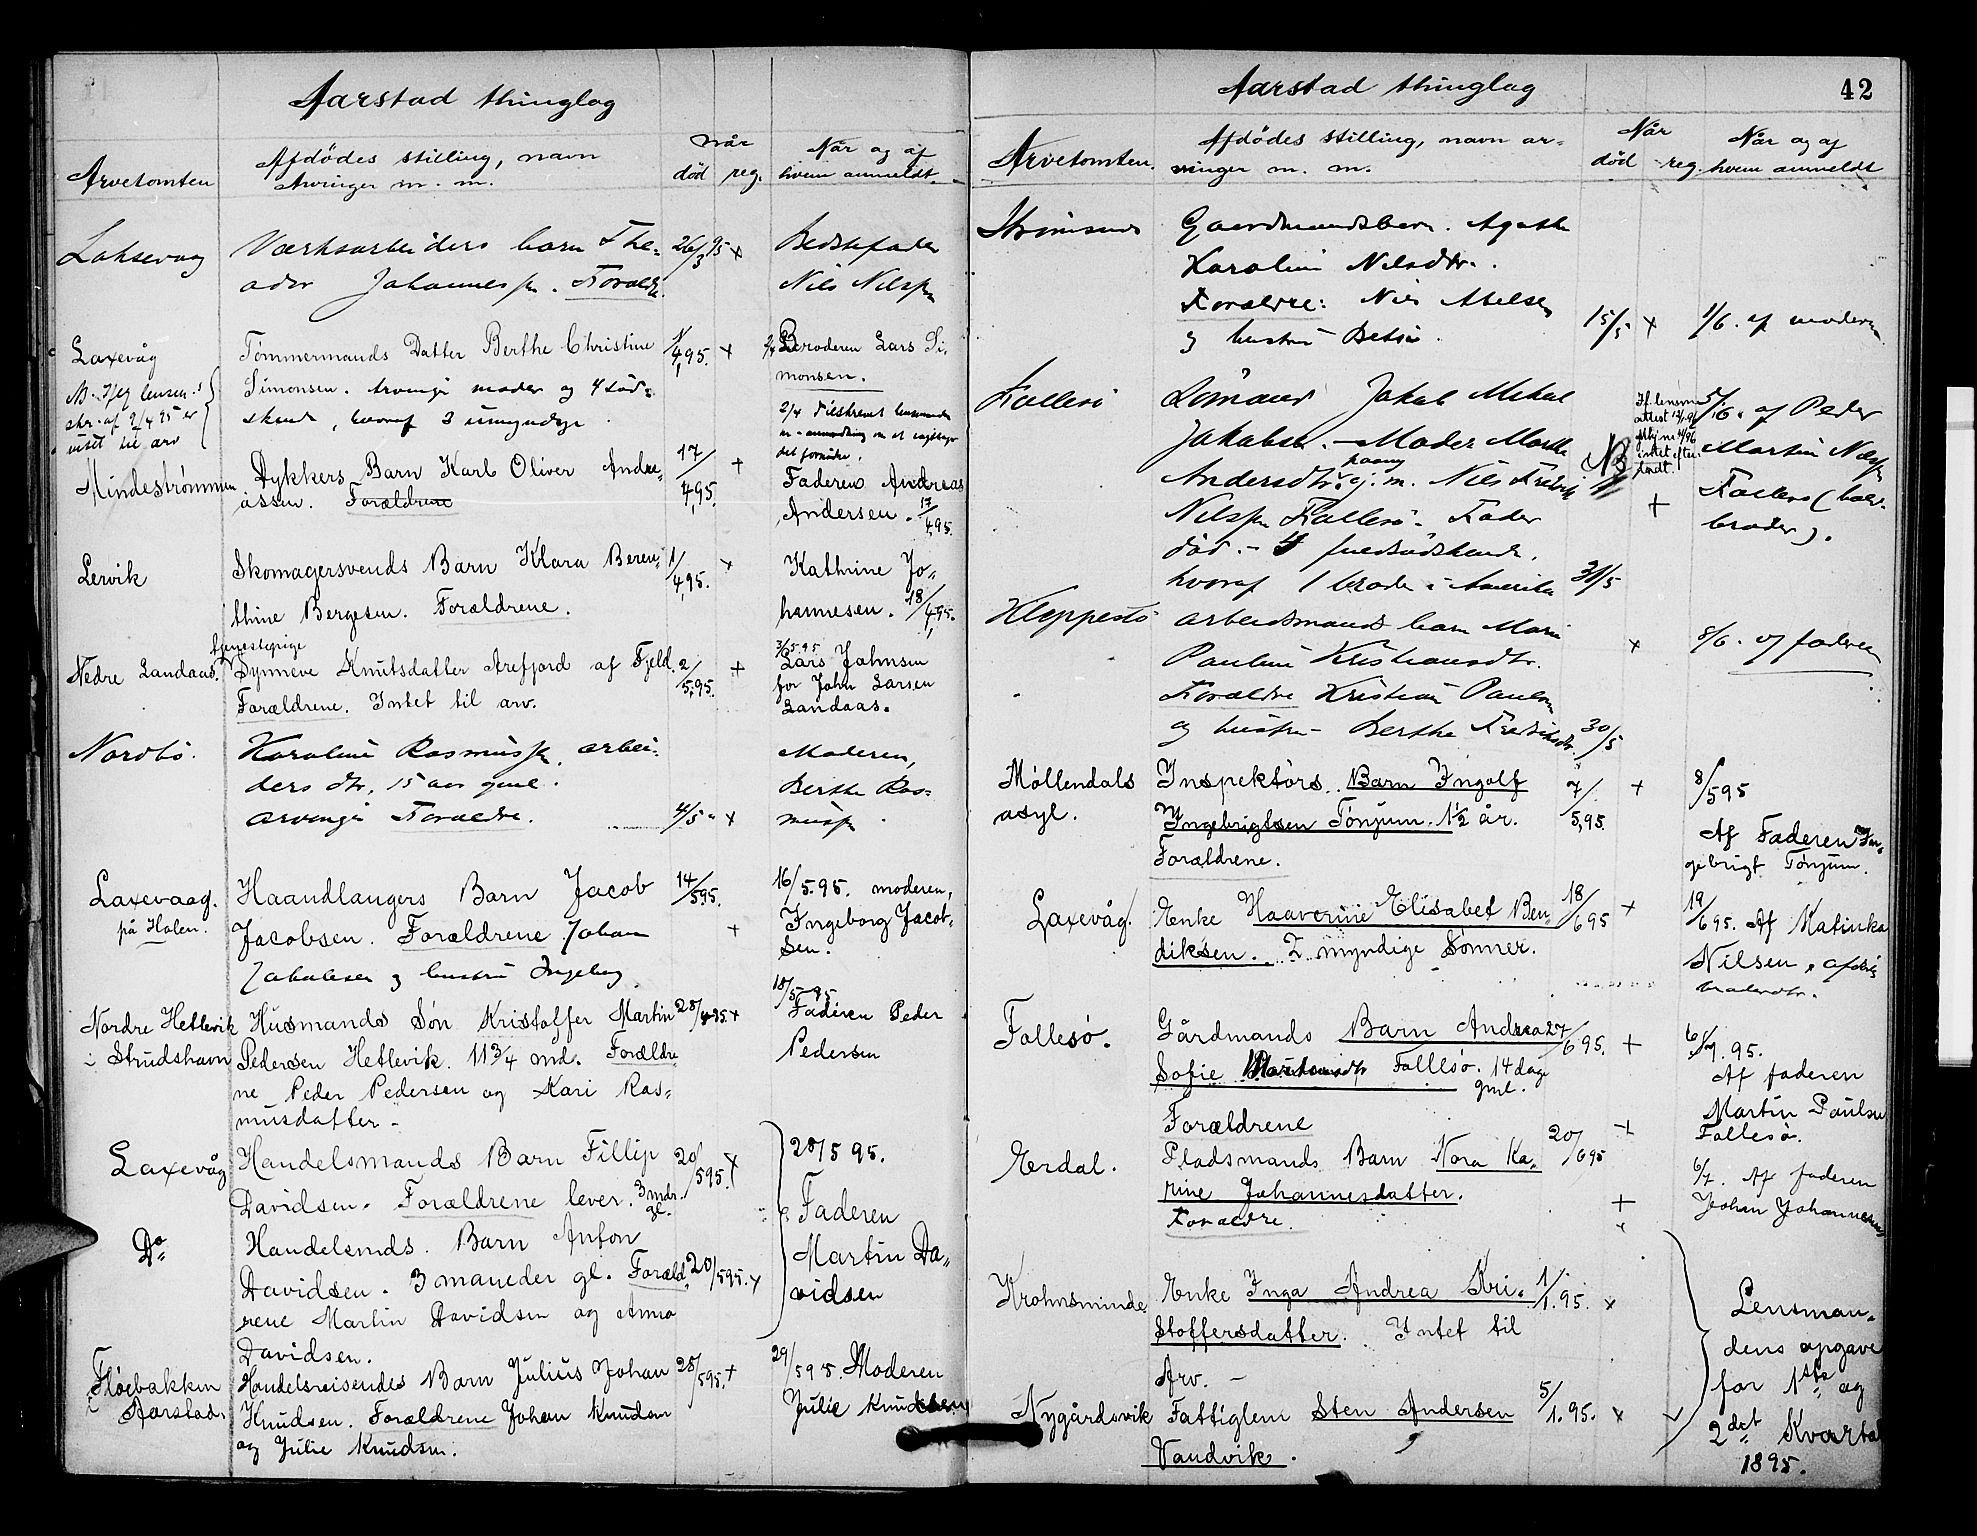 Aarstad thinglag
Arvetomten
Afdödes stilling, navn
Arvinger m. m.
når
død reg.
Når og af
hvem anmeldt.
Laksevaag
Værksarbeiders barn The=
odor Johannessen. Forældre
26/3 95 x
Bedstefader
Nils Nilsen
Laxevåg
Tømmermands Datter Berthe Christine
Simonsen. Arvinge moder og 4 sød=
skend, hvoraf 3 umyndige.
1/4,95. +
2/4 Broderen Lars Si,
monsen.
skr. af 2/4 95 er
intet til arv
2/4
det fornødne.
Mindestrømmen
Dykkers Barn Karl Oliver Andre,
assen. Forældrene
17/4,95. +
Faderen Andreas
Andersen. 17/4,95.
Lervik
Skomagersvends Barn Klara Beren,
thine Bergesen. Forældrene.
1/4,95. x
Kathrine Jo,,
hannesen. 18/4,95.
Nedre Landaas.
tjenestepige
Synneve Knutsdatter Arefjord af Fjeld.
Forældrene. Intet til arv.
2/5,95. +
3/5.95
Lars Johnsen
for John Larsen
Landaas.
Nordbö.
Karoline Rasmussen, arbei=
ders dtr, 15 aar gml.
arvinge Forældre.
4/5 x
Moderen,
Berthe Ras=
mussen.
Laxevaag.
på Holen.
Haandlangers Barn Jacob
Jacobsen. Forældrene Johan
Jakobsen og hustru Ingeborg.
14/5 95. +
16/5.95. moderen,
Ingeborg Jacob-
sen.
Nordre Hetlevik
i Strudshavn
Husmands Søn Kristoffer Martin
Pedersen Hetlevik. 11 3/4 md. Forældre
ne Peder Pedersen og Kari Ras=
musdatter -
28/4 95. +
18/5-95
Faderen Peder
Pedersen
Laxevåg
Handelsmands Barn Fillip
Davidsen. Forældrene lever. 3 mdr.
gl.
20/5 95. x
28/5 95.
Faderen
Martin Da,,
vidsen
Do
Handelsmds. Barn Anton
Davidsen. 3 maneder gl. Foræld,
rene Martin Davidsen og Anna
Davidsen.
20/5 95. x
Fløebakken
i Aarstad.
Handelsreisendes Barn Julius Johan
Knudsen. Forældrene Johan Knudsen
og Julie Knudsen.
28/5 95. +
29/5 95. Moderen
Julie Knudsen
42
Aarstad thinglag
Arvetomten.
Afdödes stilling, navn ar-
vinger m. m.
Når
død reg.
Når og af
hvem anmeldt
Gaardmandsbarn. Agathe
Karoline Nilsdtr.
Forældre: Nils Abelsen
og hustru Betsi.
15/5 x
1/6. af moderen
Follesö
Jakob Mikal
Jakobsen. - Moder Marthe
Andersdtr. g. m. Nils Fredrik
Nilssen Follesö. Fader
død. - 4 fuldsødskende.
hvoraf 1 broder i Amerika
31/5
NB
attest
intet efter-
ladt.
+
5/6. af Peder
Martin Nilssen
Follesö (halv-
broder).
Kleppestö
arbeidsmands barn Marie
Pauline Kristiansdtr.
Forældre Kristian Paulsen
og hustru Berthe Fredriksdtr.
30/5
x
8/6. af faderen
Møllendals
asyl.
Inspektörs Barn Ingolf
Ingebrigtsen Tönjum. 1 1/2 år.
Forældrene.
7/5,95. +
8/5 95
Af Faderen In,
gebrigt Tönjum.
Laxevåg.
Enke Haaverine Elisabet Ben,
diksen. 2 myndige Sønner.
18/6 95 +
19/6 95. Af Katinka
Nilsen, afdøs
broderdtr.
Follesö.
Gårdmands Barn Andrea
Sofie Martinsdtr Follesö. 14 dage
gml.
Forældrene
27/6 95. +
6/7. 95.
Af faderen
Martin Paulsen
Follesö.
Erdal.
Pladsmands Barn Nora Ka,
rine Johannesdatter.
Forældre.
20/6 95
+
+
6/7. Af faderen
Johan Johannesen
Krohnsminde
Enke Inga Andrea Kri,
stoffersdatter. Intet til
Arv. -
1/1.95. x
Lensman,
dens opgave
for 1ste og
2det Kvartal
1895.
Nygårdsvik
Fattiglem Sten Andersen
Vandvik.
5/1.95. x